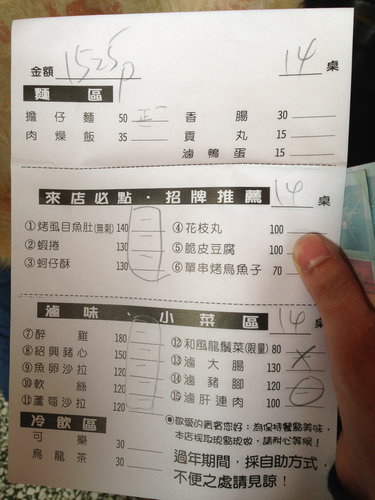 金額 1525p 14 桌
麵區
擔仔麵 50 正一 香腸 30
肉燥飯 35 貢丸 15
滷鴨蛋 15
來店必點・招牌推薦 14 桌
①烤虱目魚肚(無刺) 140 一 ④花枝丸 100
②蝦捲 130 一 ⑤脆皮豆腐 100
③蚵仔酥 130 一 ⑥單串烤烏魚子 70
滷味、小菜區 14 桌
⑦醉雞 180 一 ⑫和風龍鬚菜(限量) 80
⑧紹興豬心 150 一 ⑬滷大腸 130
⑨魚卵沙拉 120 一 ⑭滷豬腳 120 一
⑩軟絲 120 一 ⑮滷肝連肉 100
⑪蘆筍沙拉 120 一
冷飲區
可樂 30
烏龍茶 30
●敬愛的貴賓您好：為保持餐點美味，
本店採取現點現做，請耐心等候！
過年期間，採自助方式，
不便之處請見諒！